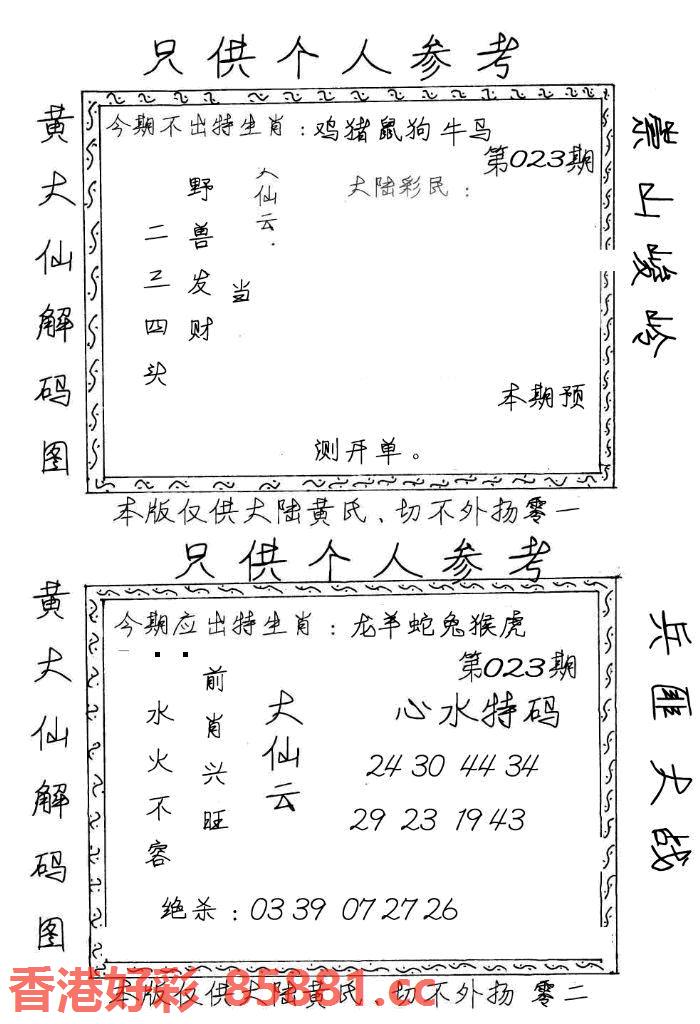 只供个人参考
黄大仙解码图
今期不出特生肖：鸡猪鼠狗牛马
第023期
大仙云.
野兽发财
二三四头
当
大陆彩民：
本期预
测开单。
崇山峻岭
本版仅供大陆黄氏、切不外扬零一
只供个人参考
黄大仙解码图
今期应出特生肖：龙羊蛇兔猴虎
第023期
前肖兴旺
水火不容
大仙云
心水特码
24 30 44 34
29 23 19 43
绝杀：03 39 07 27 26
兵匪大战
香港好彩 85881.cc
本版仅供大陆黄氏、切不外扬 零二